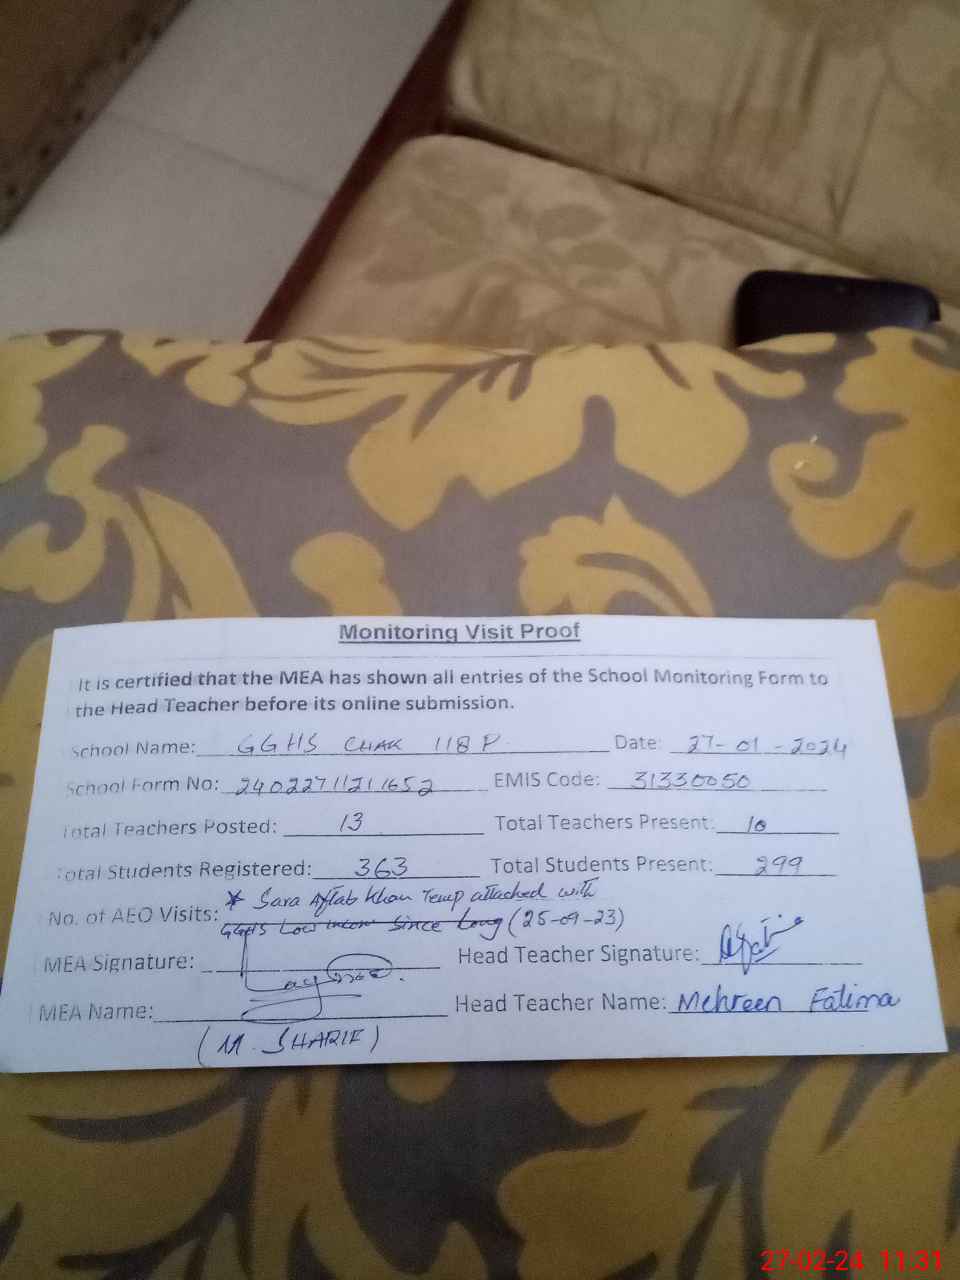 Monitoring Visit Proof
It is certified that the MEA has shown all entries of the School Monitoring Form to
the Head Teacher before its online submission.
School Name: GGHS CHAK 118 P. Date: 27-01-2024
School Form No: 24022711211652 EMIS Code: 31330050
Total Teachers Posted: 13 Total Teachers Present: 10
Total Students Registered: 363 Total Students Present: 299
* Sara Aftab Khan Temp attached with
No. of AEO Visits: GGHS Low income Since Long (25-09-23)
MEA Signature: Head Teacher Signature:
MEA Name: Head Teacher Name: Mehreen Fatima
(M. SHARIF)
27-02-24 11:31